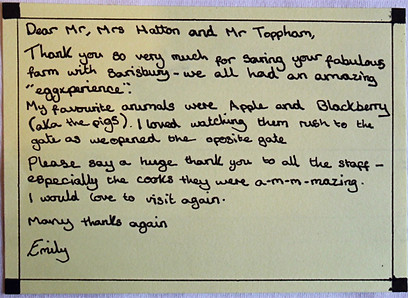 Dear Mr, Mrs Hatton and Mr Toppham,
Thank you so very much for saring your fabulous
farm with Sarisbury - we all had an amazing
"eggxperience".
My favourite animals were Apple and Blackberry
(aka the pigs). I loved watching them rush to the
gate as we opened the oposite gate
Please say a huge thank you to all the staff -
especially the cooks they were a-m-m-mazing.
I would love to visit again.
Many thanks again
Emily